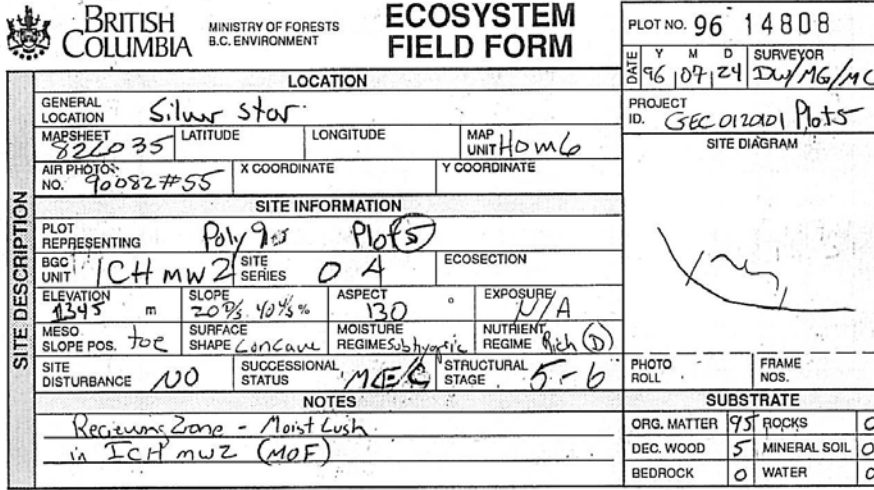 BRITISH COLUMBIA
MINISTRY OF FORESTS
B.C. ENVIRONMENT
ECOSYSTEM
FIELD FORM
PLOT NO. 96 14808
DATE Y M D 96 07 24 SURVEYOR DW/MG/MC
PROJECT ID. GEC 0120101 Plot 5
SITE DIAGRAM
SITE DESCRIPTION
LOCATION
GENERAL LOCATION Silver Star
MAPSHEET 82L035 LATITUDE LONGITUDE MAP UNIT
AIR PHOTO NO. 90082 #55 X COORDINATE Y COORDINATE
SITE INFORMATION
PLOT REPRESENTING Poly Plot 5
BGC UNIT ICH mw2 SITE SERIES ECOSECTION
ELEVATION 1345 m SLOPE % ASPECT 130 ° EXPOSURE N/A
MESO SLOPE POS. toe SURFACE SHAPE Concave MOISTURE REGIME Subhygric NUTRIENT REGIME Rich (D)
SITE DISTURBANCE NO SUCCESSIONAL STATUS STRUCTURAL STAGE 5-6
PHOTO ROLL FRAME NOS.
NOTES
Recieving Zone - Moist Lush
in ICH mw2 (MOF)
SUBSTRATE
ORG. MATTER 95 ROCKS 0
DEC. WOOD 5 MINERAL SOIL 0
BEDROCK 0 WATER 0